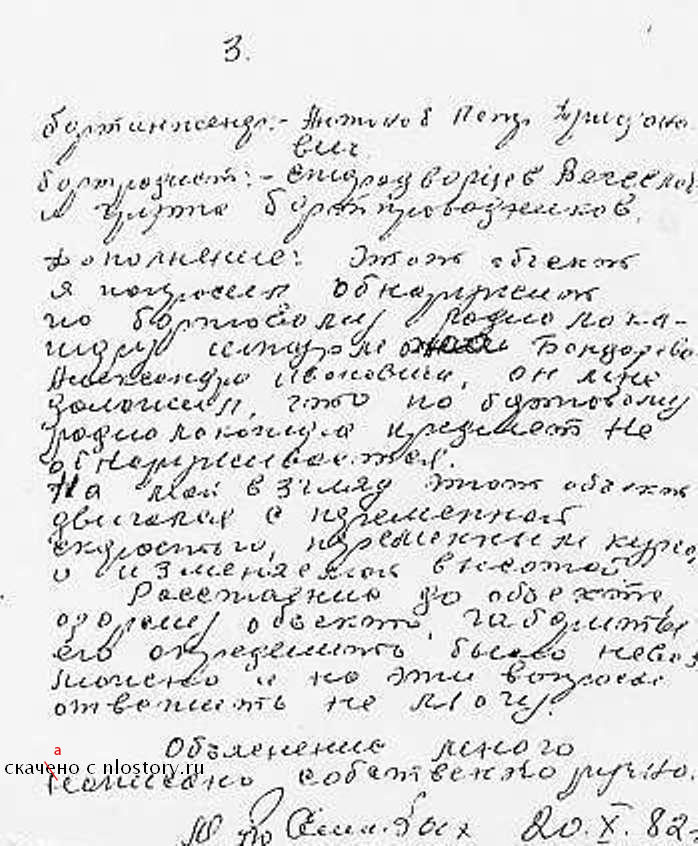 3.
бортинженер:- Антонов Петр
вич.
бортрадист:- Стародворцев Вячеслав
и группа бортпроводников.
Дополнение: Этот объект
я попросил обнаружить
по бортовому радиолока-
тору штурмана Бондарева
Александра Ивановича, он мне
доложил, что по бортовому
радиолокатору предмет не
обнаруживается.
На мой взгляд этот объект
двигался с переменной
скоростью, переменным курсом
и изменяемой высотой.
Расстояние до объекта,
форму объекта, габариты
его определить было невоз
можно и на эти вопросы
ответить не могу.
Объяснение мною
а
скачено с nlostory.ru
написано собственноручно.
20.X.82г